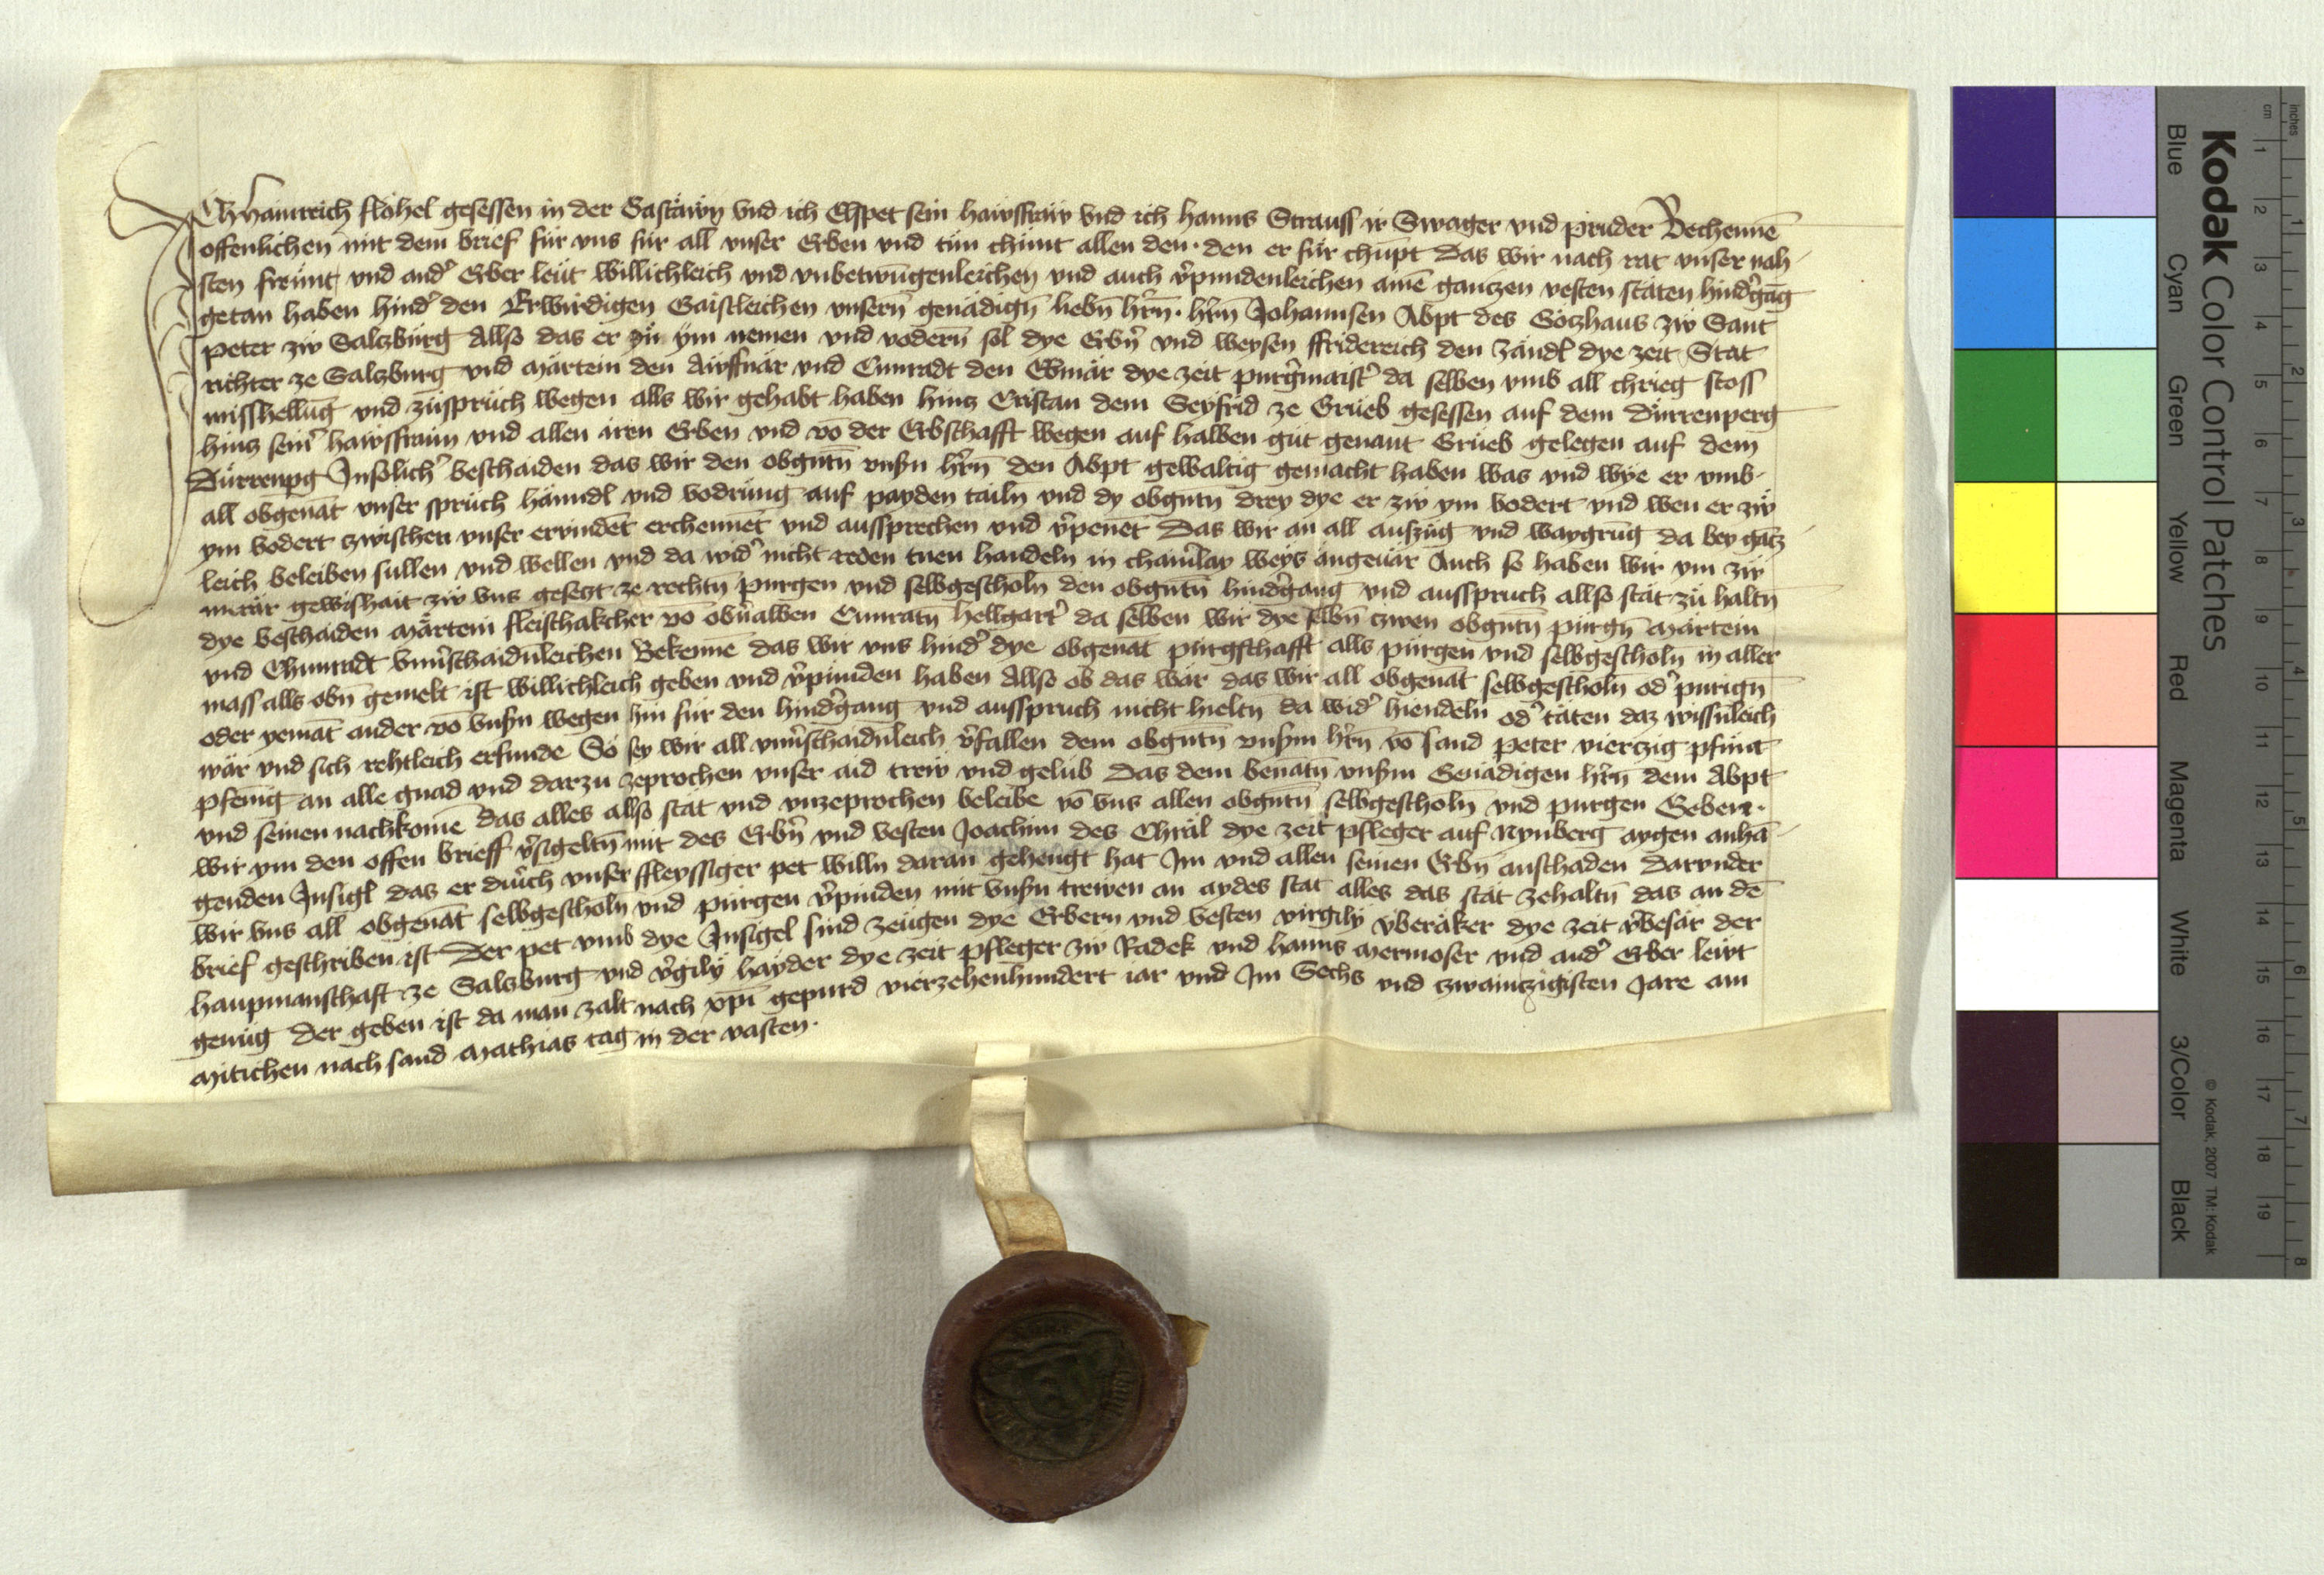 Ich hainreich flöhel gesessen in der Gastäwn vnd ich Elspet sein hawsfraw vnd ich hanns Strauss ir Swager vnd pruder Bechennē
offenlichen mit dem brief für vns für all vnser Erben vnd tün chünt allen den· den er für chūpt Das wir nach rat vnser nah-
sten frewnt vnd and' Erber leüt willichleich vnd vnbetwūgenleichen vnd auch v'pundenleichen ainē gantzen vesten stäten hind'gāg
getan haben hind' den Erwirdigen Gaistleichen vnserñ genädigñ liebñ h'rñ· h'rñ Johannsen Abpt des Gotzhaus zw Sant
Peter zw Salczburg Allso das er zü ym nemen vnd voderñ sol dye Erbñ vnd weysen ffridereich den zändl dye zeit Stat
richter ze Salzburg vnd Märtein den Aufsnär vnd Cunradt den Ebmär dye zeit purg'maist' da selben vmb all chrieg stoss
misshellūg vnd züsprüch wegen alls wir gehabt haben hinz Cristan dem Seyfrid ze Grüeb gesessen auf dem Dürrenperg
hinz sein' hawsfrawn vnd allen iren Erben vnd vō der Erbschafft wegen auf halben güt genant Grüeb gelegen auf dem
Dürrenpg Jnsolich' beschaiden das wir den obgntñ vnsñ h'rñ den Abpt gewaltig gemacht haben was vnd wye er vmb-
all obgenāt vnser sprüch hänndl vnd vodrüng auf payden tailn vnd dy obgntñ drey dye er zw ym vodert vnd wen er zw
ym vodert zwischen vnser ervindēt erchennēt vnd aussprechen vnd v'penet Das wir an all auszüg vnd waygrūg da bey gātz
leich beleiben sullen vnd wellen vnd da wid' nicht reden tuen handeln in chain'lay weys angeuär Auch so haben wir ym zw
merär gewishait zw vns gesetzt ze rechtñ purgen vnd selbgescholn den obgntñ hind'gang vnd ausspruch allso stät zü haltñ
dye beschaiden Märtein fleischakcher vō obñalben Cunratñ hellgart' da selben wir dye selbñ zwen obgntñ purgñ Märtein
vnd Chunradt vnu'schaidnleichen Bekennē das wir vns hind' dye obgenāt purgschafft alls pürgen vnd selbgescholñ in aller
mass alls obñ gemelt ist willichleich geben vnd v'punden haben Allso ob das wär das wir all obgenāt selbgescholñ od' purigñ
oder yemāt ander vō vnsñ wegen hin für den hind'gang vnd ausspruch nicht hieltñ da wid' hiendeln od' täten daz wissñleich
wär vnd sich rehtleich erfunde So sey wir all vnu'schaidnleich v'fallen dem obgntñ vnsm h'rñ vō sand Peter vierczig pfünt
pfenīg an alle gnad vnd darzu zeprochen vnser aid trew vnd gelüb Das dem benātñ vnsm Genädigen h'rñ dem Abpt
vnd seinen nachkomē das alles allso stät vnd vnzeprochen beleibe vō vns allen obgntñ selbgescholñ vnd purgen Geben·
wir ym den offen brieff v'sigeltñ mit des Erbñ vnd vesten Joachim des Chräl dye zeit pfleger auf Nynberg aygen anhā-
genden Jnsigl das er dürch vnser ffleyssiger pet willn daran gehengt hat Im vnd allen seinen Erbñ anschaden Darvnder
wir vns all obgenāt selbgescholñ vnd purgen v'pinden mit vnsñ trewen an aydes stat alles das stät zehaltñ das an dē
brief geschriben ist Der pet vmb dye Jnsigel sind zeugen dye Erbern vnd vesten virgily vberäker dye zeit v'besär der
haupmanschaft ze Salzburg vnd v'gily häyder dye zeit pfleger zw Radek vnd hanns Mermoser vnd and' Erber lewt
genüg Der geben ist da man zalt nach xpī gepurd vierzehenhundert iar vnd Im Sechs vnd zwainczigisten Jare am
Mitichen nach sand Mathias tag in der vasten·
Kodak Color Control Patches
Blue Cyan Green Yellow Red Magenta White 3/Color Black
© Kodak, 2007 TM: Kodak
cm 1 2 3 4 5 6 7 8 9 10 11 12 13 14 15 16 17 18 19
inches 1 2 3 4 5 6 7 8